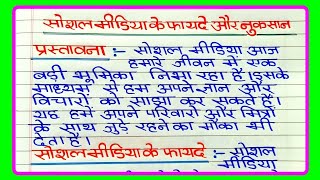 सोशल मीडिया के फायदे और नुकसान
प्रस्तावना :- सोशल मीडिया आज
हमारे जीवन में एक
बड़ी भूमिका निभा रहा है। इसके
माध्यम से हम अपने ज्ञान और
विचारों को साझा कर सकते हैं।
यह हमें अपने परिवारों और मित्रों
के साथ जुड़े रहने का मौका भी
देता है।
सोशल मीडिया के फायदे :- सोशल
मीडिया